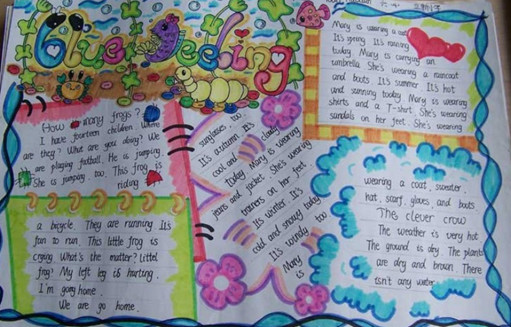 Blue Feeling
How many frogs?
I have fourteen children. Where
are they? What are you doing? We
are playing football. He is jumping.
She is jumping too. This frog is
riding
a bicycle. They are running. It's
fun to run. This little frog is
crying. What's the matter? Littel
frog? My left leg is hurting.
I'm going home
We are go home.
Mary is wearing a
It's spring. It's raining
today. Mary is carrying an
umbrella. She's wearing a raincoat
and boots. It's summer. It's hot
and sunning today. Mary is wearing
shirts and a T-shirt. She's wearing
sandals on her feet. She's wearing
sunglasse too.
It's autumn. It's
cool and cloudy
today. Mary is wearing
jeans and jacket. She's wearing
trainers on her feet.
It's winter. It's
cold and snowy today
It's windy too
Mary
is
wearing a coat, sweater.
hat, scarf, gloves, and boots
The clever crow
The weather is very hot
The ground is dry. The plants
are dry and brown. There
isn't any water